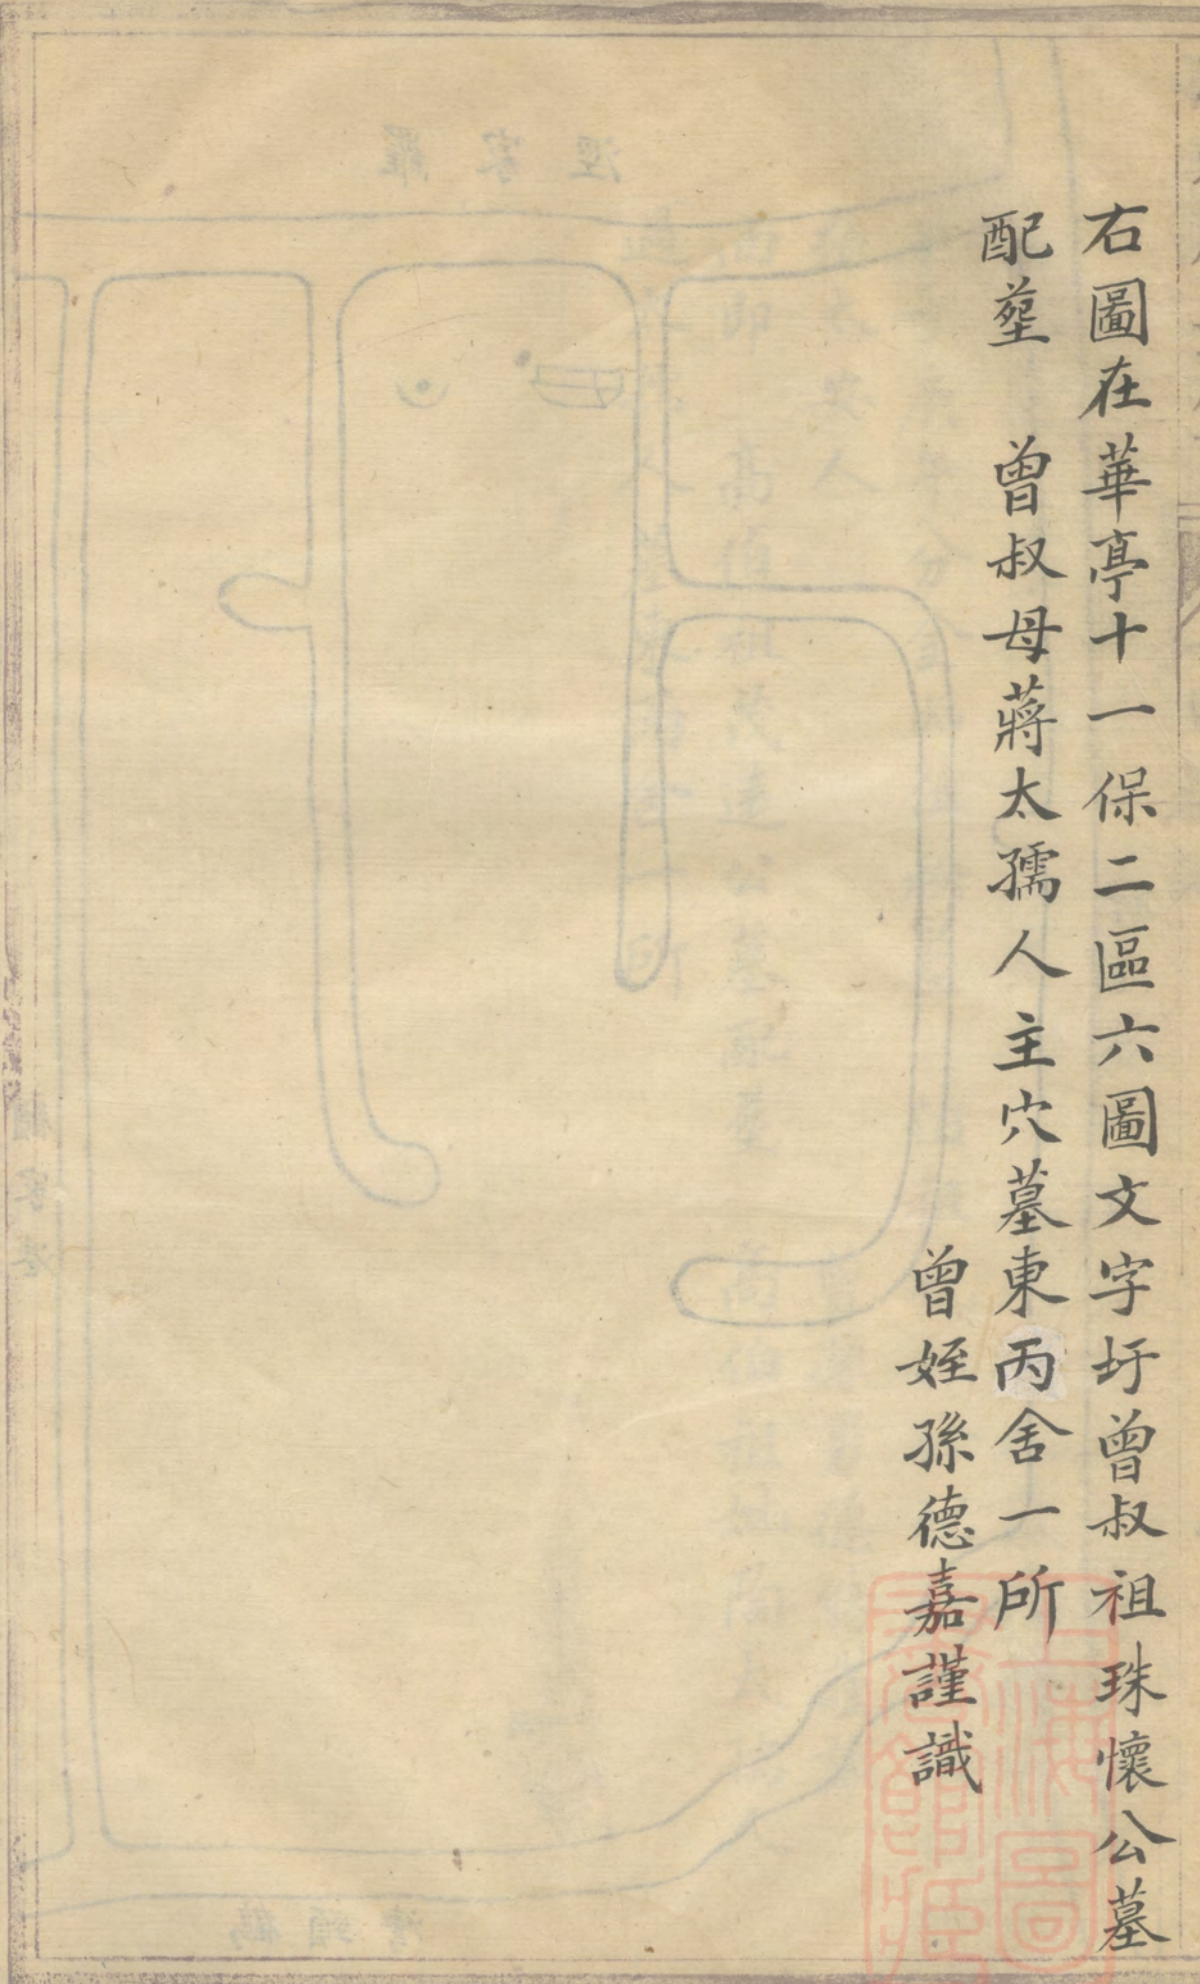 右圖在華亭十一保二區六圖文字圩曾叔祖珠懷公墓
配塟　曾叔母蔣太孺人主穴墓東丙舍一所
曾姪孫德嘉謹識
上海圖
書館藏